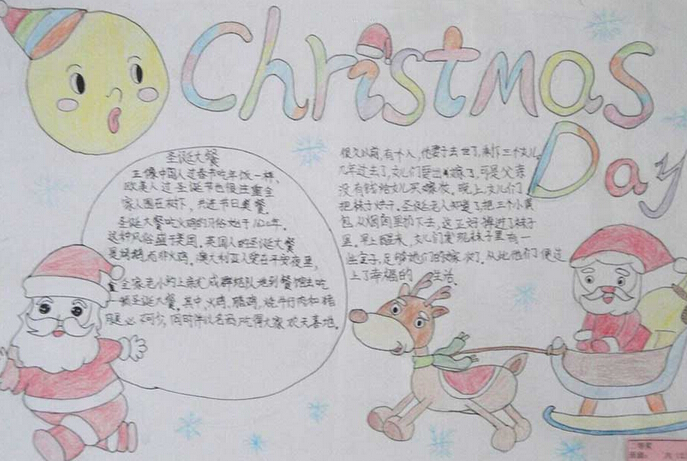 Christmas
Day
圣诞大餐
正像中国人过春节吃年饭一样,
欧美人过圣诞节也很注重全
家人围在树下,共进节日美餐。
圣诞大餐吃火鸡的习俗始于1620年。
这种风俗盛于美国。英国人的圣诞大餐
是烤鹅,而非火鸡。澳大利亚人爱在平安夜里,
全家老小约上亲友成群结队地到餐馆去吃
一顿圣诞大餐。其中,火鸡、腊鸡、烧牛仔肉和猪
腿必不可少,同时伴以名酒,吃得大家欢天喜地。
很久以前,有个人,他妻子去世了,剩下三个女儿。
几年过去了,女儿们要出嫁了,可是父亲
没有钱给女儿买嫁妆。晚上,女儿们
把袜子
圣诞老人知道了,把三个小
包从烟囱里扔下去,这正好掉进了袜子
里。早上醒来,女儿们发现袜子里有一
些金子,足够她们的嫁妆了。从此他们便过
上了幸福的 生活。
二等奖